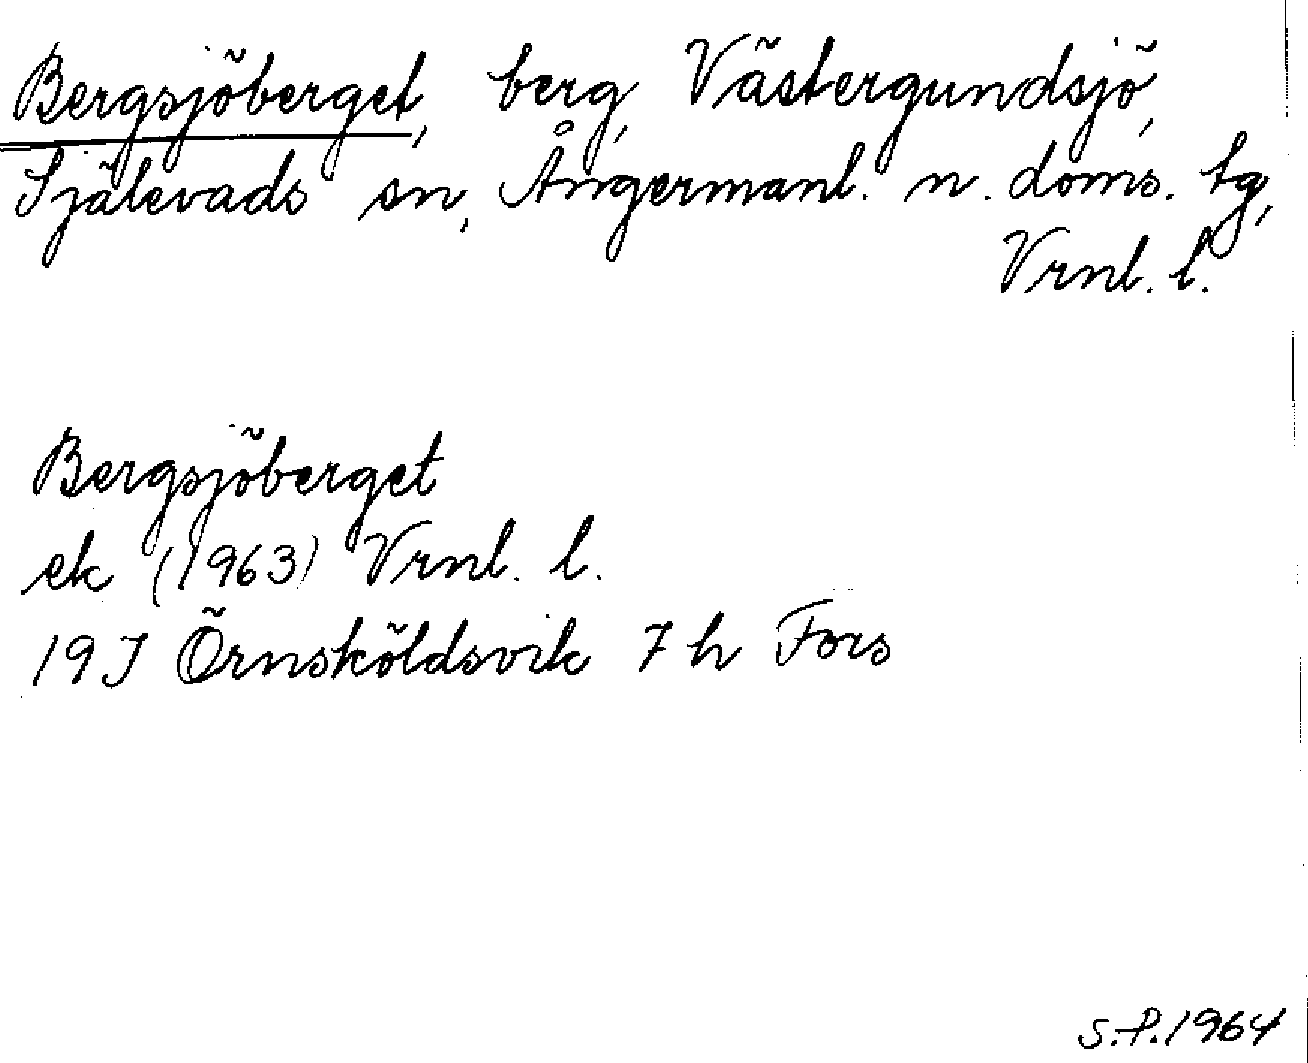 Bergsjöberget, berg, Västergundsjö,
Själevads sn, Ångermanl. n. doms. tg,
Vrnl. l.
Bergsjöberget
ek (1963) Vrnl. l.
19J Örnsköldsvik 7 h Fors
S.P.1964